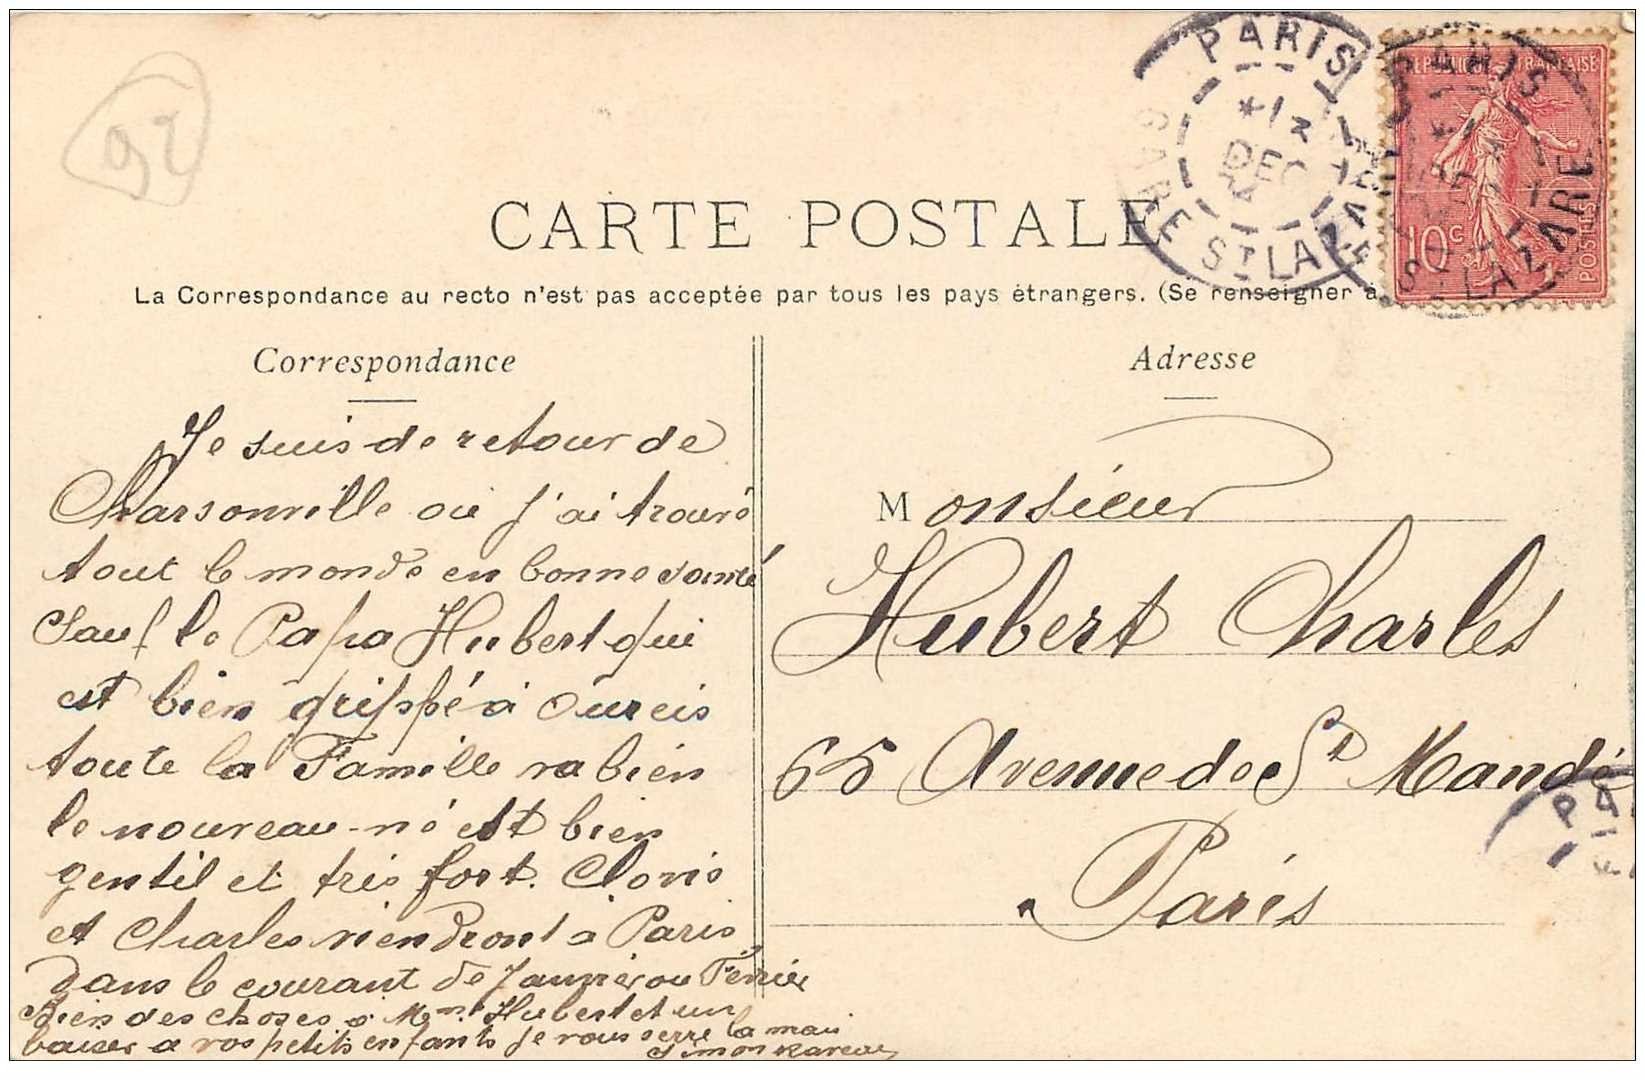 92
CARTE POSTALE
La Correspondance au recto n'est pas acceptée par tous les pays étrangers. (Se renseigner à
PARIS
13
DEC
GARE ST LAZARE
PARIS
ST LAZARE
RÉPUBLIQUE FRANÇAISE
10c
POSTES
Correspondance
Je suis de retour de
Charsonville où j'ai trouvé
tout le monde en bonne santé
Sauf le Papa Hubert qui
est bien grippé à
toute la Famille va bien
le nouveau-né est bien
gentil et très fort. Clovis
et Charles viendront à Paris
Dans le courant de Janvier ou Février
Bien des choses à Mme Hubert et un
baiser a vos petits enfants je vous serre la main
Simon
Adresse
Monsieur
Hubert Charles
65 Avenue de St Mandé
Paris
PA